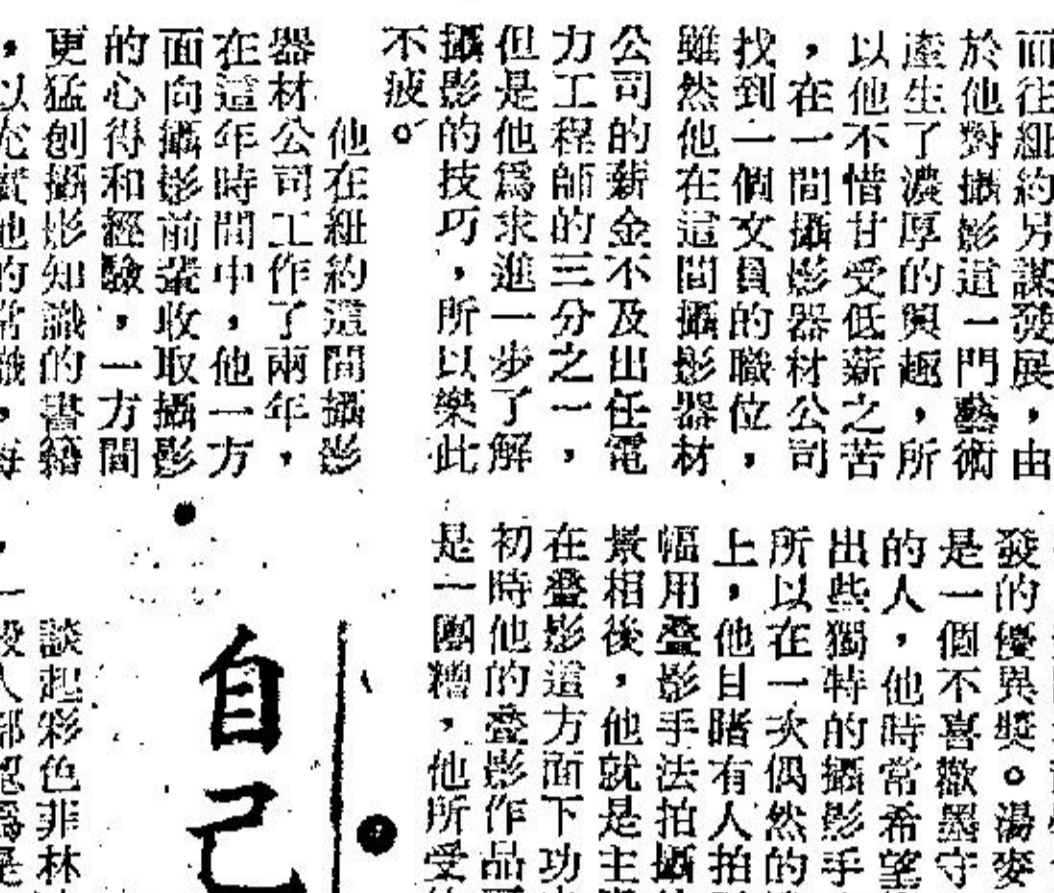 而往紐約另謀發展，由
於他對攝影這一門藝術
產生了濃厚的興趣，所
以他不惜甘受低薪之苦
，在一間攝影器材公司
找到一個文員的職位，
雖然他在這間攝影器材
公司的薪金不及出任電
力工程師的三分之一，
但是他爲求進一步了解
攝影的技巧，所以樂此
不疲。
他在紐約這間攝影
器材公司工作了兩年，
在這年時間中，他一方
面向攝影前輩收取攝影
的心得和經驗，一方間
更猛創攝影知識的書籍
，以充實他的常識，每
發的優異獎。湯麥
是一個不喜歡墨守
的人，他時常希望
出些獨特的攝影手
所以在一次偶然的
上，他目睹有人拍
幅用叠影手法拍攝
景相後，他就是主
在叠影這方面下功
初時他的叠影作品
是一團糟，他所受
自己
談起彩色非林
，一般人都認爲是